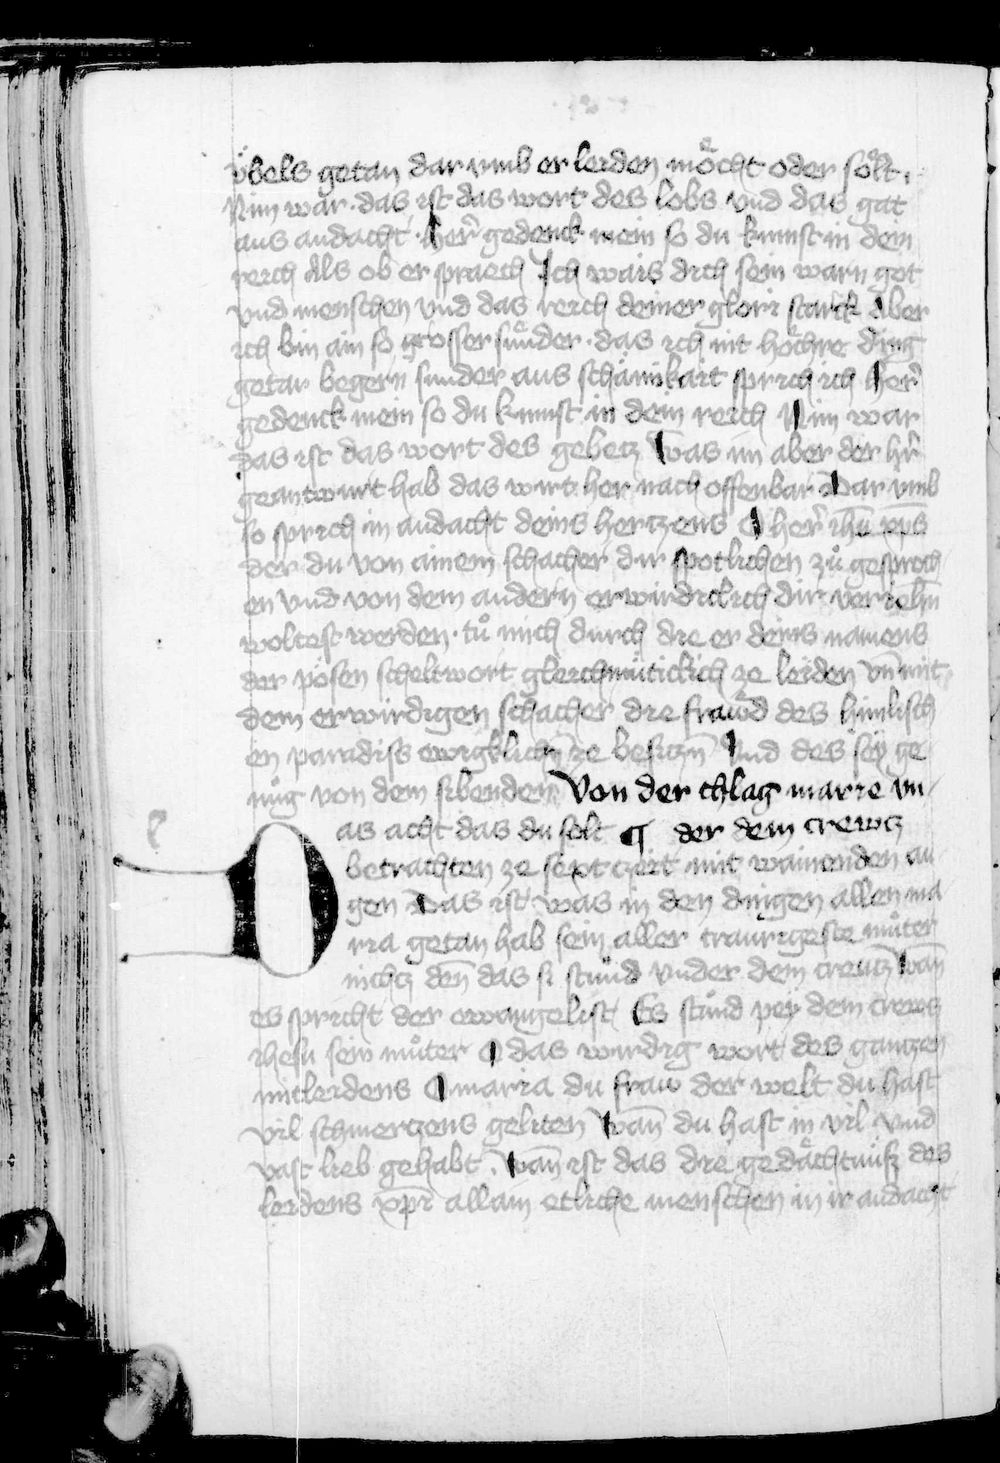 übels getan dar vmb er leiden möcht oder sölt.
Nim war. das ist das wort des lobs vnd das gat
aus andacht. her̄ gedenck mein so du kumst in dein
reich Als ob er spraech Ich wais dich sein warn got
vnd menschen vnd das reich deiner glori starck Aber
ich bin ain so grosser sünder. das ich nit höchre ding
getar begern sunder aus schämikait sprich ich her̄
gedenck mein so du kumst in dein reich Nim war
das ist das wort des gebetz Was im aber der hr̄
geantwurt hab das wirt her nach offenbar Dar vmb
so sprich in andacht deins hertzens O her̄ ihū xp̄s
der du von ainem schacher dir spotlichen zů gesproch
en vnd von dem andern erwirdiclich dir veriehn̄
woltest werden. tů mich durch die er deins namens
der pösen scheltwort gleichmüticlich ze leiden vn̄ mit
dem erwirdigen schacher die fräwd des himlisch
en paradiss ewigklichn̄ ze besitzn̄ Vnd des sey ge
nůg von dem sibenden. Von der chlag marie vn
as acht das du solt ¶ der dem crewtz
betrachten ze sext czeit mit wainenden au
gen Das ist was in den dingen allen ma
D ria getan hab sein aller traurigeste můter
nichtz den̄ das si stůnd vnder dem creutz Wan̄
es spricht der ewangelist Es stůnd pey dem crewtz
ihesu sein můter O das wirdig wort des gantzen
mitleidens O maria du fraw der welt du hast
vil schmertzens geliten Wan̄ du hast in vil vnd
vast lieb gehabt. Wan̄ ist das die gedächtnüsz des
leidens xp̄i allain etliche menschen in ir andacht